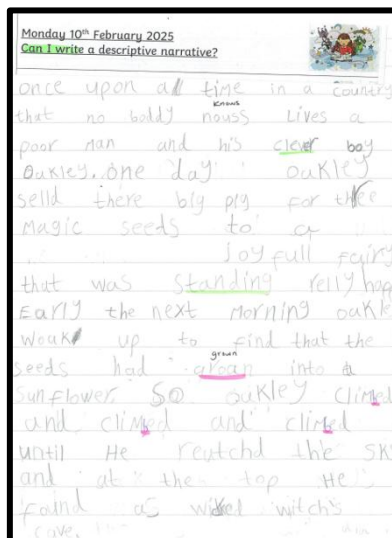 Monday 10th February 2025
Can I write a descriptive narrative?
once upon all time in a country
that no boddy nouss Lives a
knows
poor man and his clever boy
Oakley. one day oakley
selld there big pig for three
magic seeds to a
Joyfull Fairy
that was standing relly hap
Early the next Morning oakle
woak up to find that the
grown
seeds had groan into a
sunflower. so oakley climed
and climed and climed
until He reutchd the sk
and at the top He
found as wiked witch's
cave.